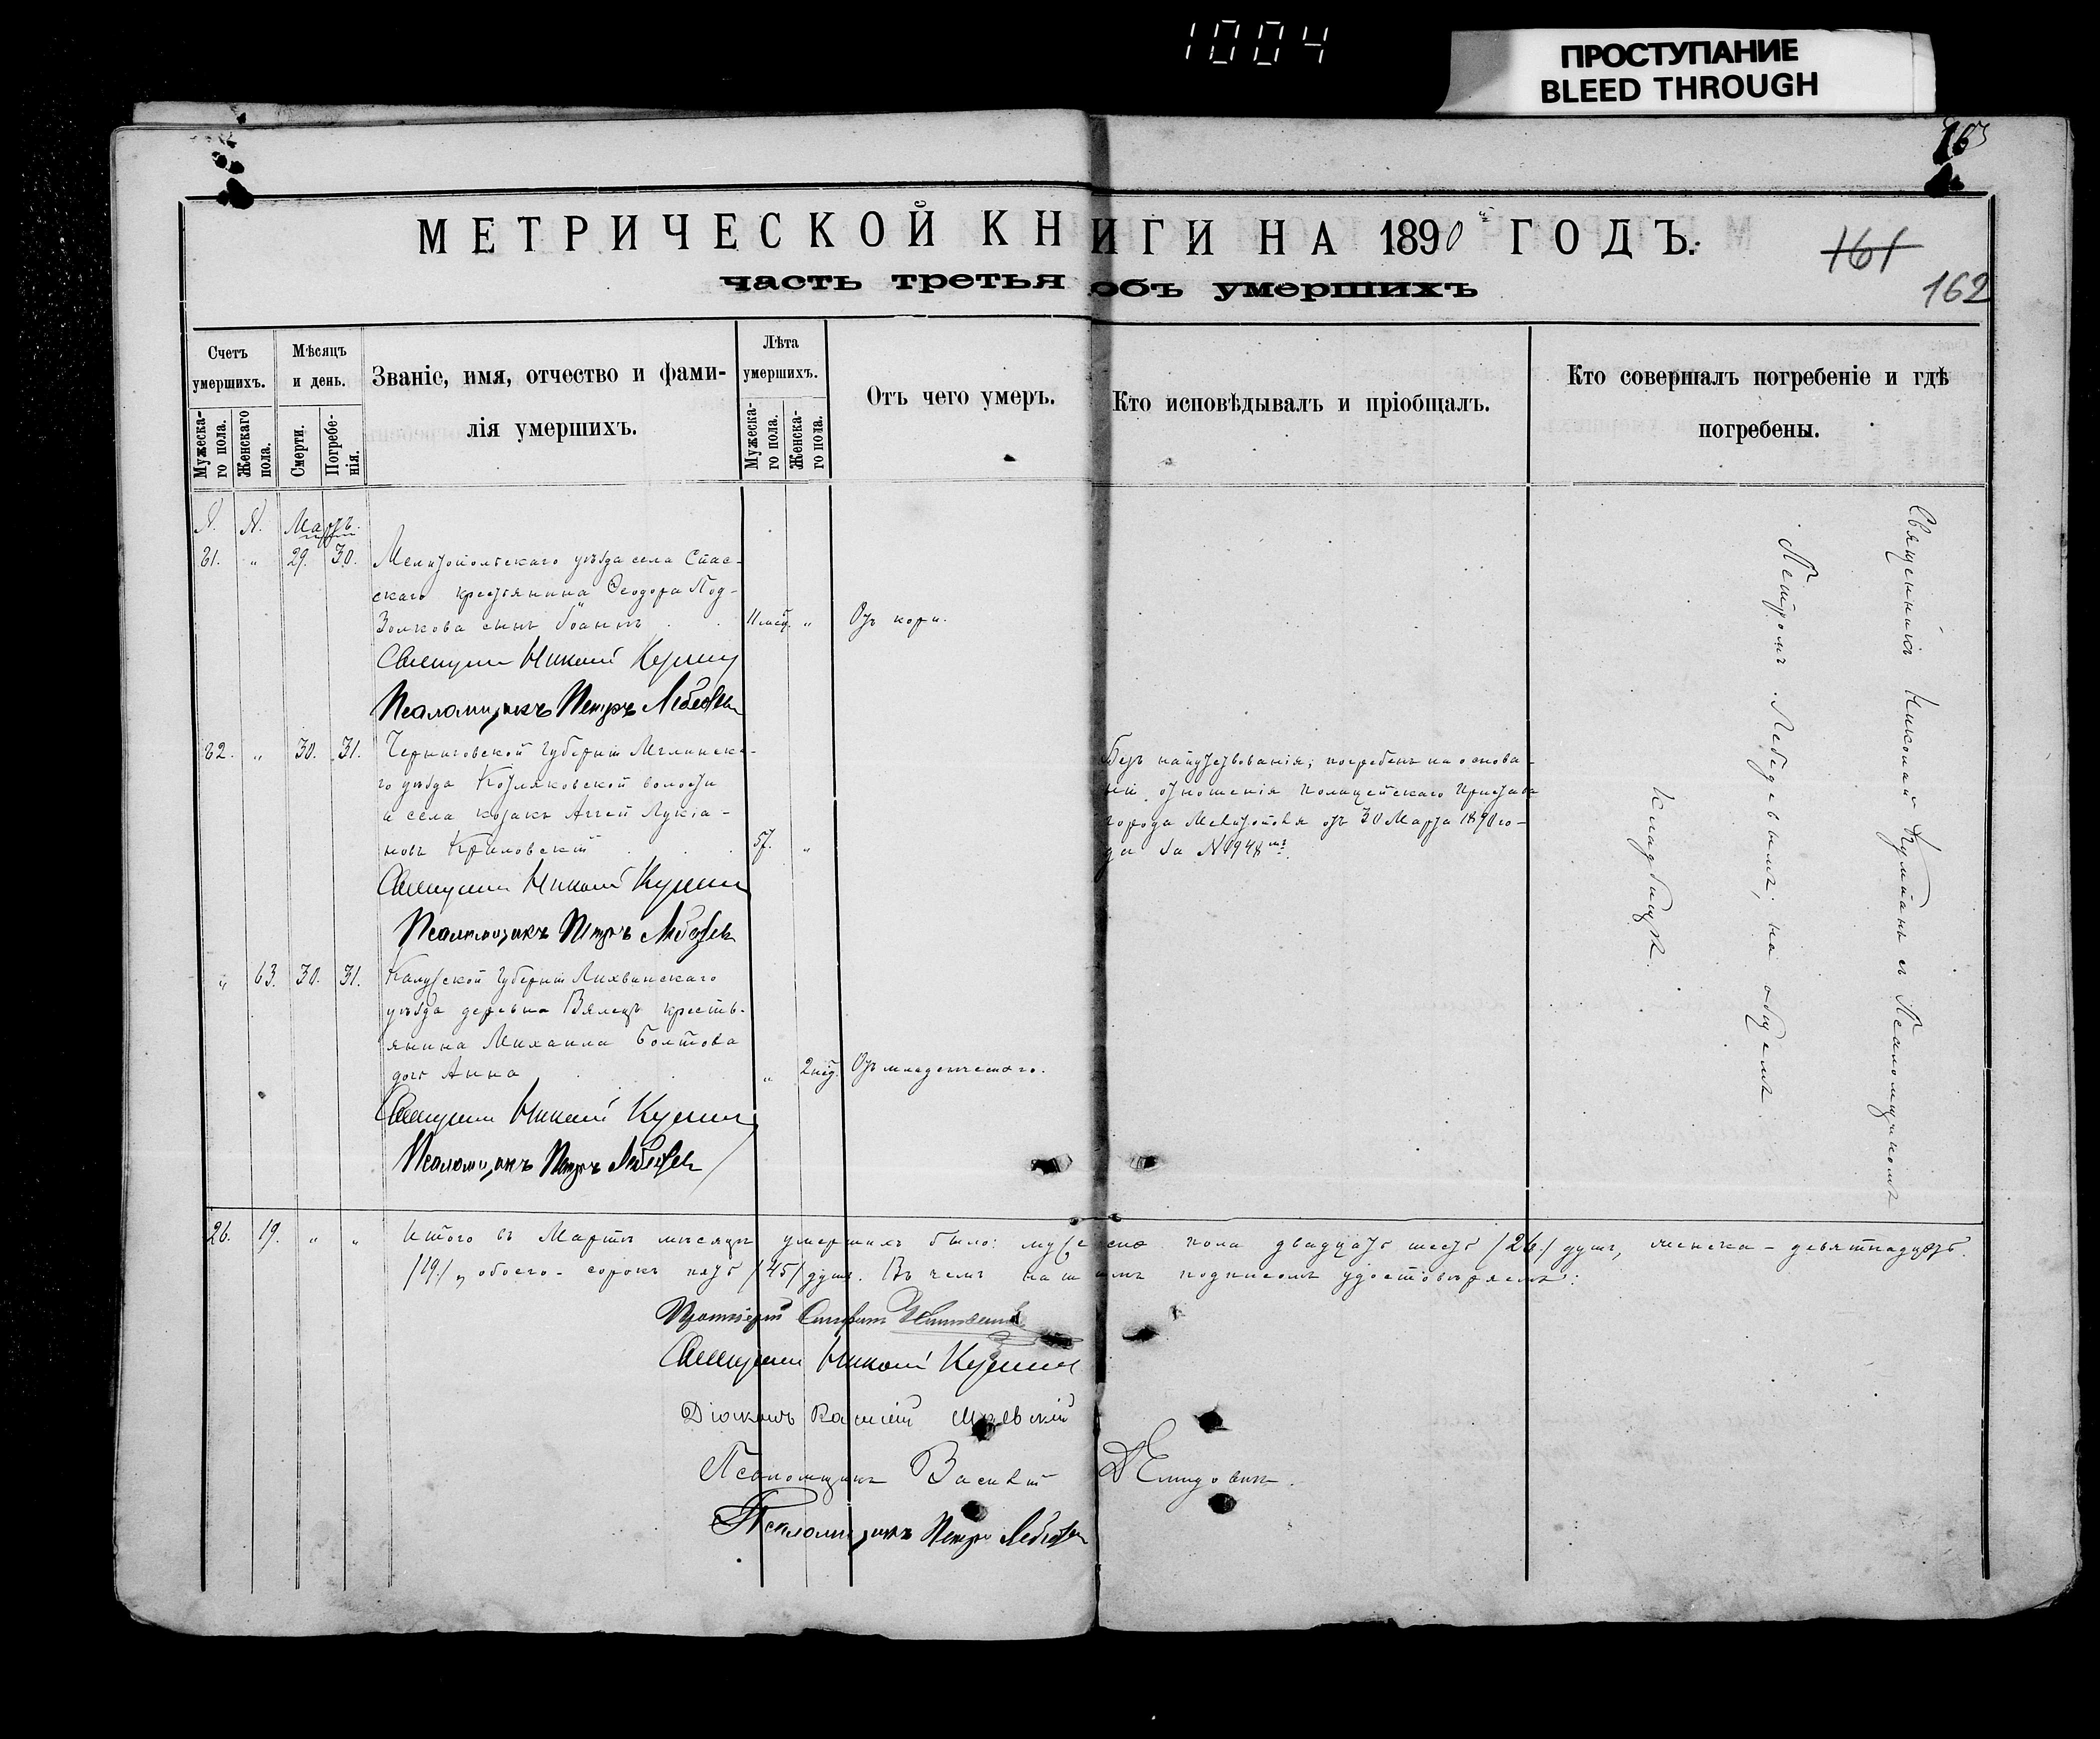 1004
ПРОСТУПАНИЕ
BLEED THROUGH
163
МЕТРИЧЕСКОЙ КНИГИ НА 1890й ГОДЪ.
161
часть третья объ умершихъ
162
Счетъ умершихъ.
Мужеска-го пола.
Женскаго пола.
Мѣсяцъ и день.
Смерти.
Погребе-нія.
Званіе, имя, отчество и фами-
лія умершихъ.
Лѣта умершихъ.
Мужеска-го пола.
Женска-го пола.
Отъ чего умеръ.
Кто исповѣдывалъ и пріобщалъ.
Кто совершалъ погребеніе и гдѣ
погребены.
Мартъ.
81. " 29. 30. Мелитопольскаго уѣзда села Спас-
скаго крестьянина Ѳеодора Под-
волкова сынъ Іоаннъ . . 11 мѣс. " Отъ кори.
Священникъ Николай
Псаломщикъ Петръ Лебедевъ
82. " 30. 31. Черниговской губерніи Мглинска-
го уѣзда Котляковской волости
и села козакъ Аггей Лукіа-
новъ . . 57. "
Безъ напутствованія; погребенъ на основа-
ніи отношенія Полицейскаго Пристава
города Мелитополя отъ 30 Марта 1890 го-
да за № 1948мъ.
Священникъ Николай
Псаломщикъ Петръ Лебедевъ
" 63. 30. 31. Калужской губерніи Лихвинскаго
уѣзда деревни крестъ-
янина Михаила Болтова
дочь Анна . . " 2 нед. Отъ младенческаго.
Священникъ Николай
Псаломщикъ Петръ Лебедевъ
Священникъ Николай съ Псаломщикомъ
Петромъ Лебедевымъ, на общемъ
кладбищѣ.
26. 19. " " Итого въ Мартѣ мѣсяцѣ умершихъ было: мужеска пола двадцать шесть /26/ душъ, женска - девятнадцать
/19/, обоего - сорокъ пять /45/ душъ. Въ чемъ нашимъ подписомъ удостовѣряемъ:
Протоіерей
Священникъ Николай
Діаконъ Василій
Псаломщикъ Василій
Псаломщикъ Петръ Лебедевъ